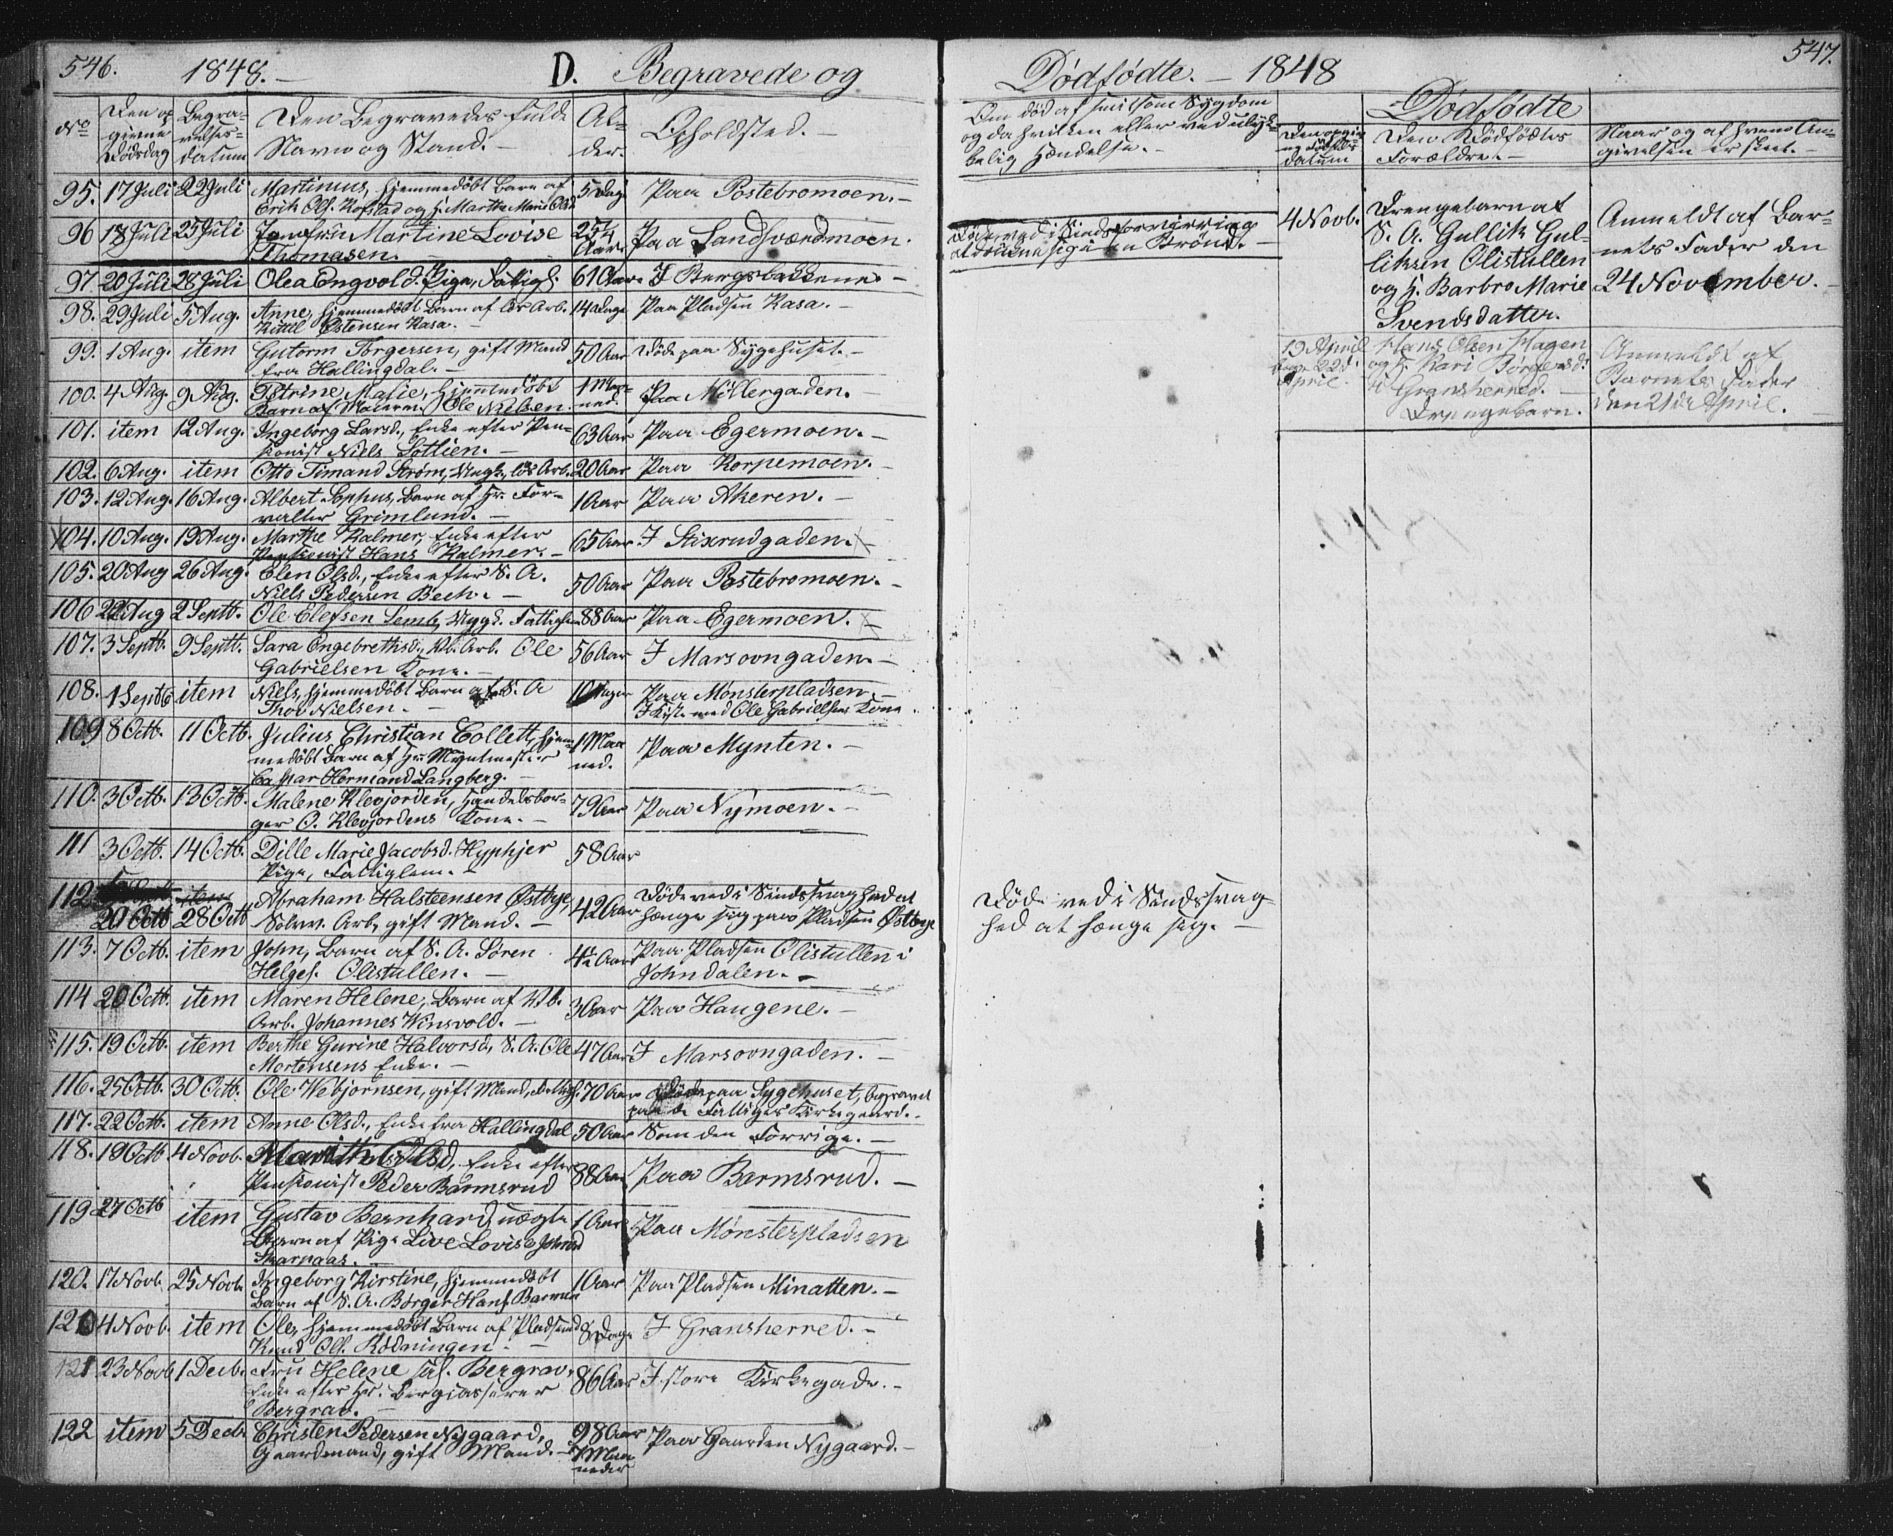 546. 1848. — D. Begravede og
No
Den op
givne
Dødsdag
Begra-
velses-
datum
Den Begravedes fulde
Navn og Stand. —
Al-
der.
Opholdsted. —
95. 17 Juli 22 Juli Martinus, hjemmedøbt Barn af 5 Dage Paa Postebromoen. —
Erik Ols. Kofstad og H. Marthe Marie Olsd
96 18 Juli 25 Juli Jomfru Martine Lovise 25¼ Aar. Paa Sandsværdmoen.
Thomasen.
97. 20 Juli 28 Juli Olea Engvold. Pige, Fattigl. 61 Aar I Bergsbakkene —
98. 29 Juli 5 Aug. Anne, hjemmedøbt Barn af Arb. 14 Dage Paa Pladsen Kasa. —
Kittil Østensen Kasa. —
99. 1 Aug. item Gutorm Torgersen, gift Mand 50 Aar Døde paa Sygehuset. —
fra Hallingdal. —
100. 4 Aug. 9 Aug. Petrine Malie, hjemmedøbt 1 Maa-
ned. Paa Möllergaden. —
Barn af Ole Nielsen.
101. item 12 Aug. Ingeborg Larsd., Enke efter Pen- 63 Aar Paa Egermoen. —
sionist Niels Sottien. —
102. 6 Aug. item Otto Timand Strøm, Ungk., løs Arb. 20 Aar Paa Korpemoen. —
103. 12 Aug. 16 Aug. Albert Sophus, Barn af Hr. For- 1 Aar Paa Akeren. —
valter Grimlund. —
104. 10 Aug. 19 Aug. Marthe Kalmer, Enke efter 65 Aar I Stixrudgaden. —
Pensionist Hans Kalmer. —
105. 20 Aug 26 Aug. Elen Olsd., Enke efter S. A. 50 Aar Paa Postebromoen. —
Niels Pedersen Bech. —
106 22 Aug 2 Septb. Ole Elefsen Semb, Ungk. Fattiglem 88 Aar Paa Egermoen. —
107. 3 Septb. 9 Septb. Sara Engebrethsd., Vb. Arb. Ole 56 Aar I Marsovngaden. —
Gabrielsen Kone. —
108. 1 Septb item Niels, hjemmedøbt Barn af S. A 10 Dager Paa Mønsterpladsen. —
Thov Nielsen. — I Kiste med Ole Gabrielsens Kone.
109 8 Octb. 11 Octb. Julius Christian Collett, hjem- 1 Maa-
ned. Paa Mynten. —
medøbt Barn af Hr Myntmester
Caspar Hermand Langberg. —
110. 3 Octb. 13 Octb. Malene Klevjorden, Handelsbor- 79 Aar Paa Nymoen. —
ger O. Klevjordens Kone. —
111 3 Octb. 14 Octb. Dille Marie Jacobsd. Hyphjer 58 Aar
Pige, Fattiglem. —
112 item
20 Octb 28 Octb Abraham Halsteensen Østbye, 42 Aar Døde ved i Sindssvaghed at
Sølvv. Arb, gift Mand. — hænge sig paa Pladsen Østbye
113. 7 Octb. item John, Barn af S. A. Sören 4½ Aar Paa Pladsen Olistullen i
Helges. Olistullen. — Johndalen. —
114 20 Octb. item Maren Helene, Barn af Vb. 3 Aar Paa Haugene. —
Arb. Johannes Winsvold. —
115. 19 Octb. item Berthe Gurine Halvorsd, S. A. Ole 47 Aar I Marsovngaden. —
Mortensens Enke. —
116. 25 Octb. 30 Octb. Ole Webjørnsen, gift Mand, Fattigl. 70 Aar Døde paa Sygehuset, begravet
paa de Fattiges Kirkegaard. —
117. 22 Octb. item Anne Olsd., Enke fra Hallingdal 50 Aar Som den Forrige. —
118. 19 Octb 4 Novb. Marith Olsd, Enke efter 88 Aar Paa Barmsrud. —
Pensionist Peder Barmsrud
119 27 Octb item Gustav Bernhard, uægte 1 Aar Paa Mønsterpladsen
Barn af Pige Live Lovise Johnsd
Skarpaas. —
120. 17 Novb. 25 Novb. Ingeborg Kirstine, hjemmedøbt 1 Aar Paa Pladsen Minatten. —
Barn af S. A. Børger Hans. Barmen
120 4 Novb. item Ole, hjemmedøbt Barn af Pladsmd 8 Dage I Gransherred. —
Knud Ols. Rødningen. —
121 23 Novb 1 Decb. Fru Helene sal. Bergrav, 86 Aar I store Kirkegade. —
Enke efter Hr. Bergcasserer
Bergrav. —
122 item 5 Decb. Christen Pedersen Nygaard, 98 Aar Paa Gaarden Nygaard. —
Gaardmand, gift Mand. — 7 Maa-
neder
Dødfødte. — 1848
547.
Om død af smitsom Sygdom
og da hvilken eller ved ulyk-
kelig Hændelse. —
Dødfødte
Den opgivne
datum
Den Dødfødtes
Forældre. —
Naar og af hvem An-
givelsen er skeet. —
Døde ved i Sindsforvirring
at drukne sig i en Brønd. —
4 Novb.
Drengebarn af
S. A. Gullik Gul-
liksen Olistullen
og H. Barbro Marie
Svendsdatter.
Anmeldt af Bar-
nets Fader den
24 November. —
19 April
22d
April.
Hans Olsen Hagen
og H. Kari Børgersd.
i Gransherred. —
Drengebarn.
Anmeldt af
Barnets Fader
den 21de April.
Døde ved i Sindssvag-
hed at hænge sig. —